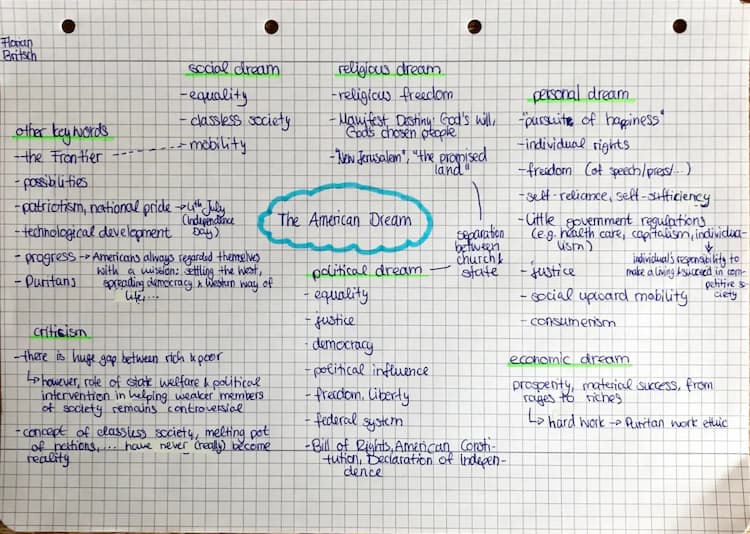 Florian
Britsch
social dream
- equality
- classless society
- mobility
religious dream
- religious freedom
- Manifest Destiny: God's will,
God's chosen people
- "New Jerusalem", "the promised
land"
separation
between
church &
state
personal dream
- "pursuite of happiness"
- individual rights
- freedom (of speech/press/...)
- self-reliance, self-sufficiency
- little government regulations
(e.g. health care, capitalism, individua-
lism)
individual's responsibility to
make a living & succeed in com-
petitive so-
ciety
- justice
- social upward mobility
- consumerism
other keywords
- the Frontier
- possibilities
- patriotism, national pride → 4th July
(Independence
Day)
- technological development
- progress → Americans always regarded themselves
with a mission: settling the West,
spreading democracy & Western way of
life,...
- Puritans
The American Dream
political dream
- equality
- justice
- democracy
- political influence
- freedom, liberty
- federal system
- Bill of Rights, American Consti-
tution, Declaration of Indepen-
dence
criticism
- there is huge gap between rich & poor
↳ however, role of state welfare & political
intervention in helping weaker members
of society remains controversial
- concept of classless society, melting pot
of nations,... have never (really) become
reality
economic dream
prosperity, material success, from
rages to riches
↳ hard work → Puritan work ethic